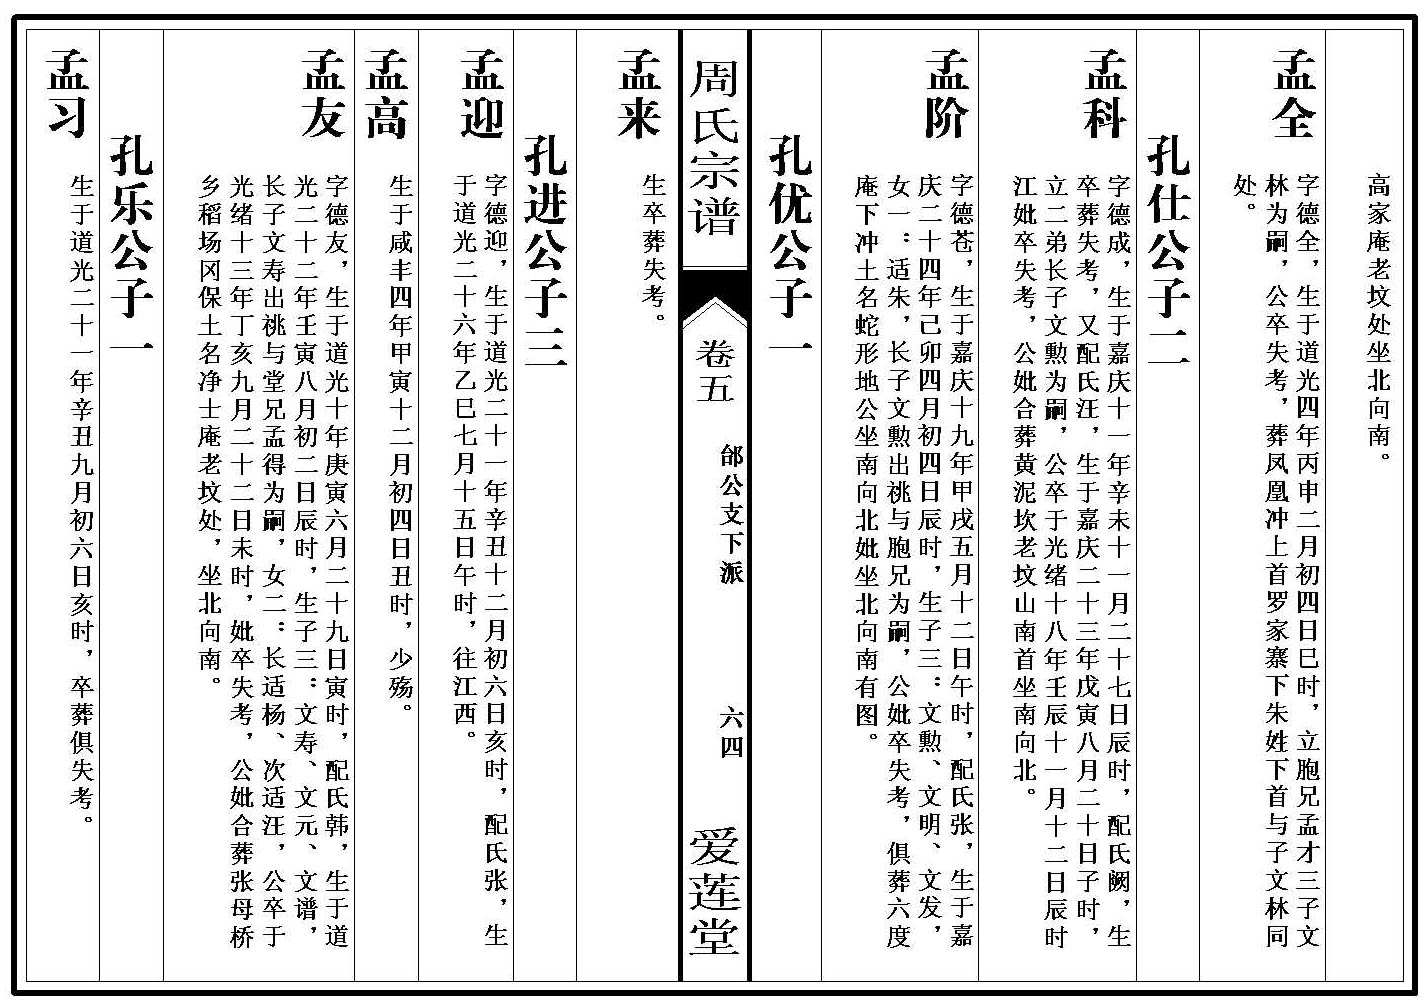 高家庵老坟处坐北向南。
孟全
字德全，生于道光四年丙申二月初四日巳时，立胞兄孟才三子文
林为嗣，公卒失考，葬凤凰冲上首罗家寨下朱姓下首与子文林同
处。
孔仕公子二
孟科
字德成，生于嘉庆十一年辛未十一月二十七日辰时，配氏阙，生
卒葬失考，又配氏汪，生于嘉庆二十三年戊寅八月二十日子时，
立二弟长子文勲为嗣，公卒于光绪十八年壬辰十一月十二日辰时
江妣卒失考，公妣合葬黄泥坎老坟山南首坐南向北。
孟阶
字德苍，生于嘉庆十九年甲戌五月十二日午时，配氏张，生于嘉
庆二十四年己卯四月初四日辰时，生子三：文勲、文明、文发，
女一：适朱，长子文勲出祧与胞兄为嗣，公妣卒失考，俱葬六度
庵下冲土名蛇形地公坐南向北妣坐北向南有图。
孔优公子一
周氏宗谱
卷五
邰公支下派
六四
爱莲堂
孟来
生卒葬失考。
孔进公子三
孟迎
字德迎，生于道光二十一年辛丑十二月初六日亥时，配氏张，生
于道光二十六年乙巳七月十五日午时，往江西。
孟高
生于咸丰四年甲寅十二月初四日丑时，少殇。
孟友
字德友，生于道光十年庚寅六月二十九日寅时，配氏韩，生于道
光二十二年壬寅八月初二日辰时，生子三：文寿、文元、文谱，
长子文寿出祧与堂兄孟得为嗣，女二：长适杨、次适汪，公卒于
光绪十三年丁亥九月二十二日未时，妣卒失考，公妣合葬张母桥
乡稻场冈保土名净士庵老坟处，坐北向南。
孔乐公子一
孟习
生于道光二十一年辛丑九月初六日亥时，卒葬俱失考。